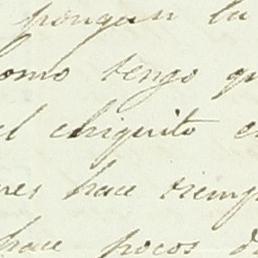 pongan la
como tengo qu
el chiquito e
nes hace siemp
hace pocos d